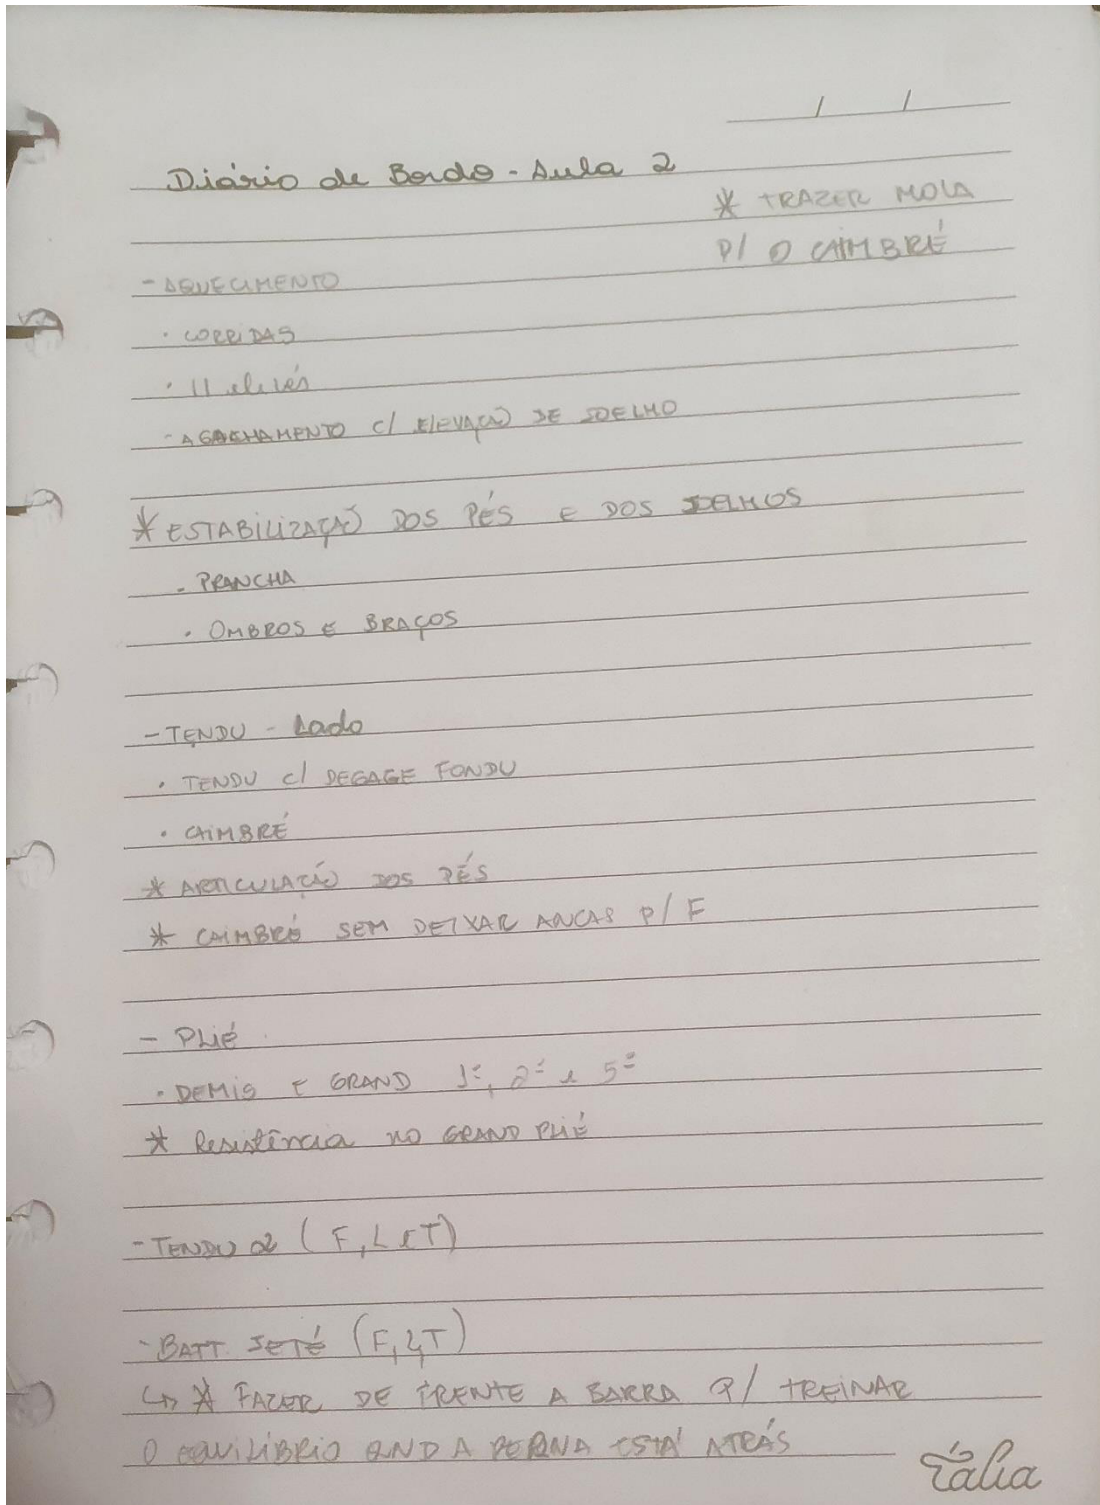 / /
Diário de Bordo - Aula 2
* TRAZER MOLA
P/ O CAIMBRÉ
- AQUECIMENTO
. CORRIDAS
. 11 elevés
- AGACHAMENTO C/ ELEVAÇÃO DE JOELHO
* ESTABILIZAÇÃO DOS PÉS E DOS JOELHOS
- PRANCHA
. OMBROS E BRAÇOS
- TENDU - Lado
. TENDU C/ DEGAGE FONDU
. CAIMBRÉ
* ARTICULAÇÃO DOS PÉS
* CAIMBRÉ SEM DEIXAR ANCAS P/ F
- PLIÉ
. DEMIS E GRAND 1ª, 2ª e 5ª
* Resistência no GRAND PLIÉ
- TENDU 2 (F, L e T)
- BATT. JETÉ (F, L, T)
↳ * FAZER DE FRENTE A BARRA P/ TREINAR
O EQUILÍBRIO QND A PERNA ESTÁ ATRÁS
Tália